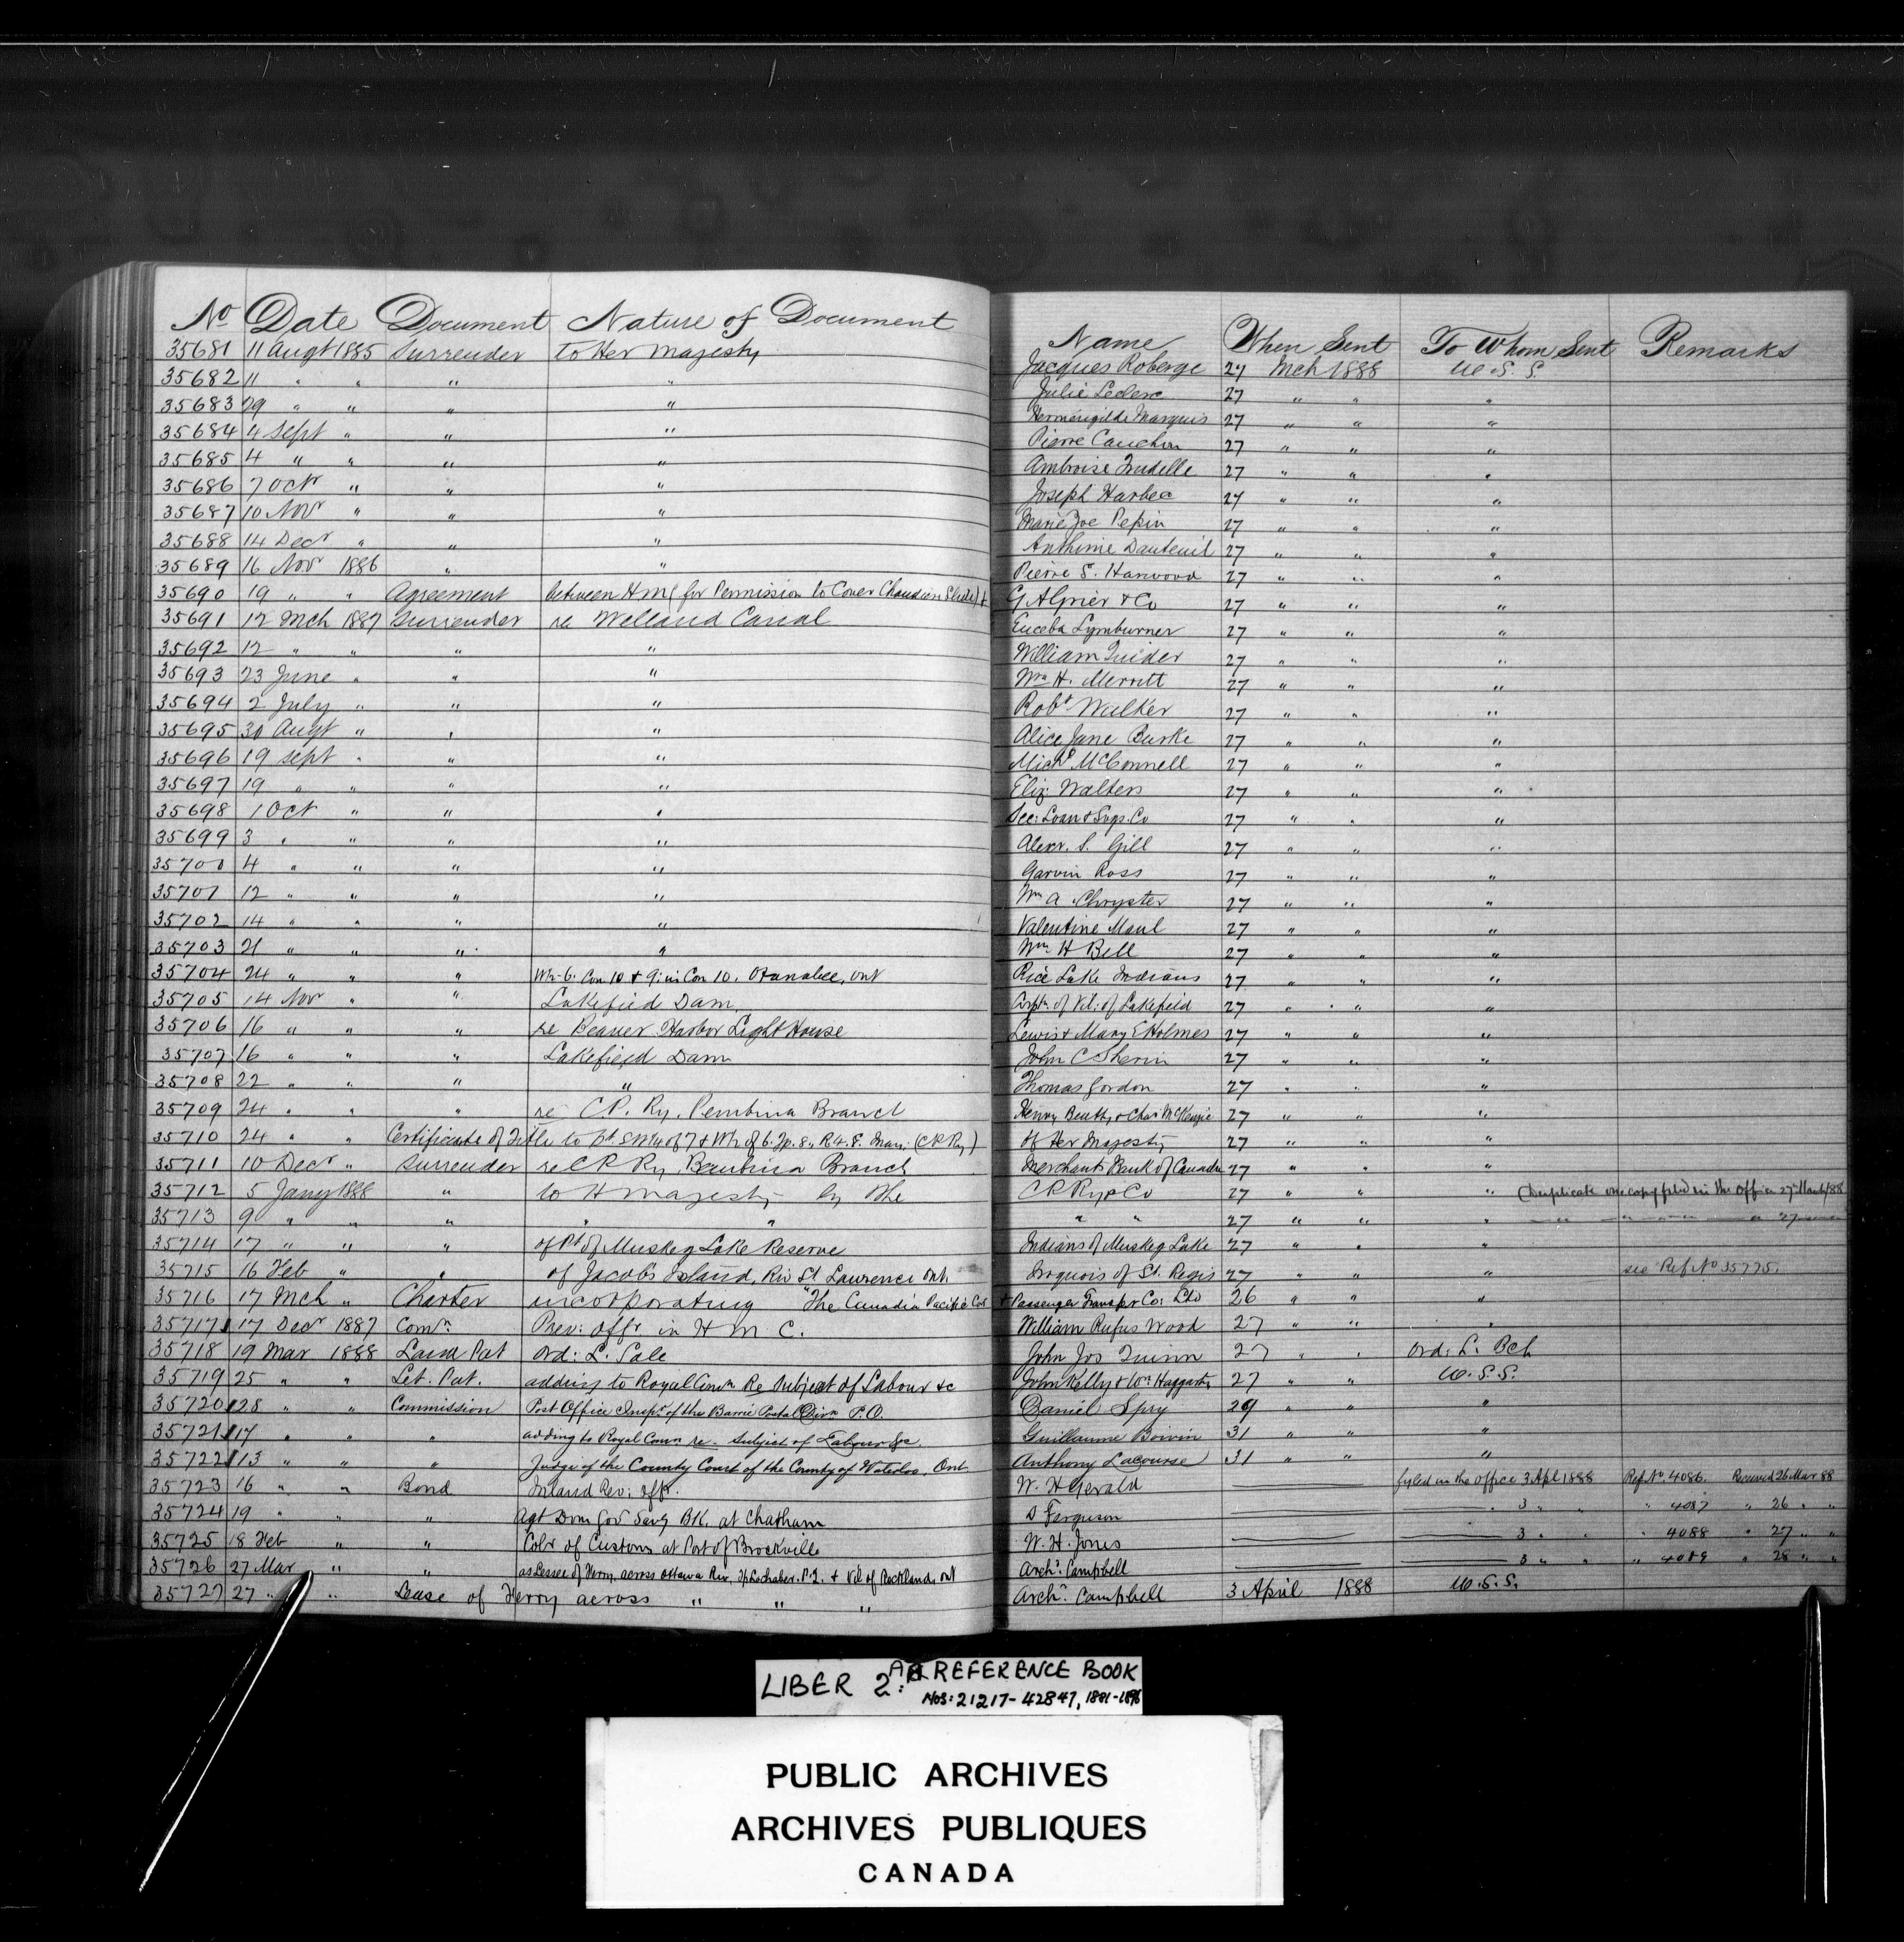 No Date Document Nature of Document Name When Sent To Whom Sent Remarks
35681 11 Augt 1885 Surrender to Her Majesty Jacques Roberge 27 Mch 1888 U.S.S.
35682 11 " " " " Julie Leclerc 27 " " "
35683 29 " " " " Hermenigilde Marquis 27 " " "
35684 4 Sept " " " Pierre Cauchon 27 " " "
35685 4 " " " " Ambroise Trudelle 27 " " "
35686 7 Octr " " " Joseph Harbec 27 " " "
35687 10 Novr " " " Marie Zoe Pepin 27 " " "
35688 14 Decr " " " Anthime Dauteuil 27 " " "
35689 16 Novr 1886 " " Pierre S. Harwood 27 " " "
35690 19 " " Agreement between H M (for Permission to Cover Chaudiere Slide) + G A Grier + Co 27 " " "
35691 12 Mch 1887 Surrender re Welland Canal Euceba Lymburner 27 " " "
35692 12 " " " " William 27 " " "
35693 23 June " " " Wm H. Merritt 27 " " "
35694 2 July " " " Robt Walker 27 " " "
35695 30 Augt " " " Alice Jane Burke 27 " " "
35696 19 Sept " " " Michl McConnell 27 " " "
35697 19 " " " " Eliz. Walters 27 " " "
35698 1 Oct " " " Sec: Loan + Svgs. Co 27 " " "
35699 3 " " " " Alexr. S. Gill 27 " " "
35700 4 " " " " Garvin Ross 27 " " "
35701 12 " " " " Wm A Chryster 27 " " "
35702 14 " " " " Valentine Maul 27 " " "
35703 21 " " " " Wm H Bell 27 " " "
35704 24 " " " Con 10 + 9: in Con 10. Otanabee, Ont Rice Lake Indians 27 " " "
35705 14 Novr " " Lakefied Dam, Corptn of Vil: of Lakefield 27 " " "
35706 16 " " " re Beaver Harbor Light House Lewis + Mary E Holmes 27 " " "
35707 16 " " " Lakefield Dam John C Sherin 27 " " "
35708 22 " " " " Thomas Gordon 27 " " "
35709 24 " " " re C.P. Ry. Pembina Branch Henry Beatty + Chas McKenzie 27 " " "
35710 24 " " Certificate of Title to Pt. S W¼ of 7 + W½ of 6. Tp. 8., R. 4. E. Man: (C P Ry) of Her Majesty 27 " " "
35711 10 Decr " Surrender re C P Ry, Pembina Branch Merchants Bank of Canada 27 " " "
35712 5 Jany 1888 " to H Majesty by the C P Ry Co 27 " " " (Duplicate one copy filed in the Office 27 March/88
35713 9 " " " " " " " 27 " " " " " " 27
35714 17 " " " of Pt of Muskeg Lake Reserve Indians of Muskeg Lake 27 " " "
35715 16 Feb " " of Jacobs Island, Riv St. Lawrence Ont. Iroquois of St. Regis 27 " " " see Ref. No 35775.
35716 17 Mch " Charter incorporating "The Canadia Pacific Car + Passenger Transfer Co: Ltd 26 " " "
35717 17 Decr 1887 Comn Prev: Offr in H M C. William Rufus Wood 27 " " "
35718 19 Mar 1888 Land Pat Ord: L. Sale John Jos Quinn 27 " " Ord: L. Bch
35719 25 " " Let. Pat. adding to Royal Comn Re Subject of Labour &c John Kelly + Wm Haggarty 27 " " U.S.S.
35720 28 " " Commission Post Office Inspr of the Barrie Postal Divn P.O. Daniel Spry 29 " " "
35721 17 " " " adding to Royal Comn re Subject of Labour &c. Guillaume Boivin 31 " " "
35722 13 " " " Judge of the County Court of the County of Waterloo. Ont. Anthony Lacourse 31 " " "
35723 16 " " Bond Inland Rev: Offr. W. H Gerald fyled in the Office 3 Apl 1888 Ref No 4086. Received 26 Mar 88
35724 19 " " " Agt Dom Gov Savg Bk. at Chatham D Ferguson " 3 " " " 4087 " 26 " "
35725 18 Feb " " Colr of Customs at Port of Brockville W. H. Jones 3 " " " 4088 " 27 " "
35726 27 Mar " " as Lessee of Ferry across Ottawa Riv. Tp Lochaber. P.Q. + Vil of Rockland, Ont Archd. Campbell 3 " " " 4089 " 28 " "
35727 27 " " Lease of Ferry across " " " Archd. Campbell 3 April 1888 U.S.S.
LIBER 2: REFERENCE BOOK
Nos: 21217-42847, 1881-1896
PUBLIC ARCHIVES
ARCHIVES PUBLIQUES
CANADA